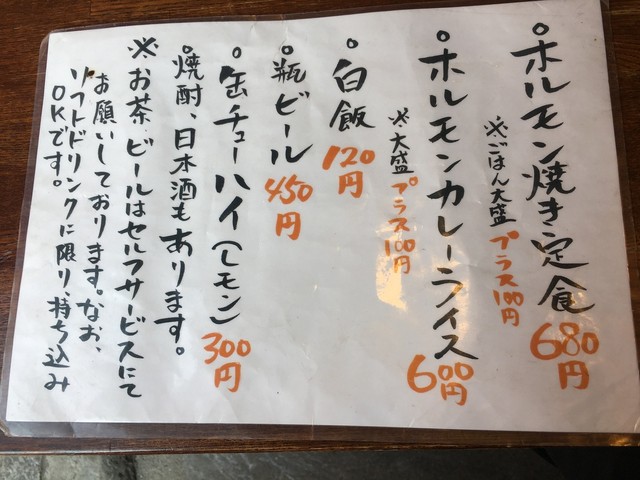 ・ホルモン焼き定食 680円
※ごはん大盛 プラス100円
・ホルモンカレーライス 600円
※大盛 プラス100円
・白飯 120円
・瓶ビール 450円
・缶チューハイ(レモン) 300円
・焼酎、日本酒もあります。
※お茶、ビールはセルフサービスにて
お願いしております。なお、
ソフトドリンクに限り、持ち込み
OKです。